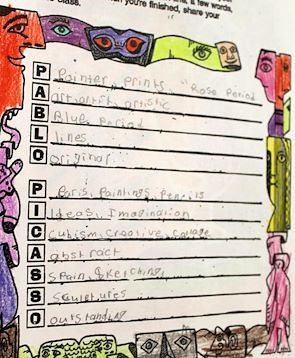 when you're finished, share your
class.
P Painter, prints, "Rose Period
A art, artist, artistic
B Blue Period
L lines
O original
P Paris, Paintings, Pencils
I Ideas, Imagination
C Cubism, Creative, Collage
A abstract
S Spain, Sketching
S Sculptures
O outstanding